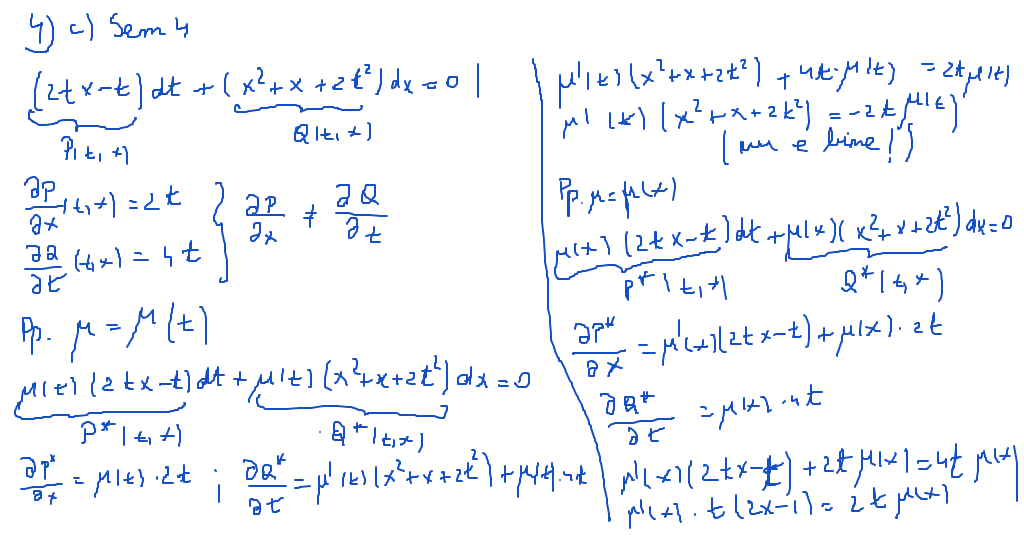 4) c) Sem 4
(2tx-t) dt + (x²+x+2t²) dx = 0 |
P(t, x)
Q(t, x)
∂P/∂x (t, x) = 2t
∂Q/∂t (t, x) = 4t
} ∂P/∂x ≠ ∂Q/∂t
Pp. μ = μ(t)
μ(t) (2tx-t) dt + μ(t) (x²+x+2t²) dx = 0
P*(t, x)
Q*(t, x)
∂P*/∂x = μ(t)·2t ; ∂Q*/∂t = μ'(t) (x²+x+2t²) + μ(t)·4t
μ'(t) (x²+x+2t²) + 4t·μ(t) = 2t μ(t)
μ'(t) (x²+x+2t²) = -2t μ(t)
(nu e bine!)
Pp. μ = μ(x)
μ(x) (2tx-t) dt + μ(x) (x²+x+2t²) dx = 0
P*(t, x)
Q*(t, x)
∂P*/∂x = μ'(x) (2tx-t) + μ(x)·2t
∂Q*/∂t = μ(x)·4t
μ'(x) (2tx-t) + 2t μ(x) = 4t μ(x)
μ'(x)·t (2x-1) = 2t μ(x)